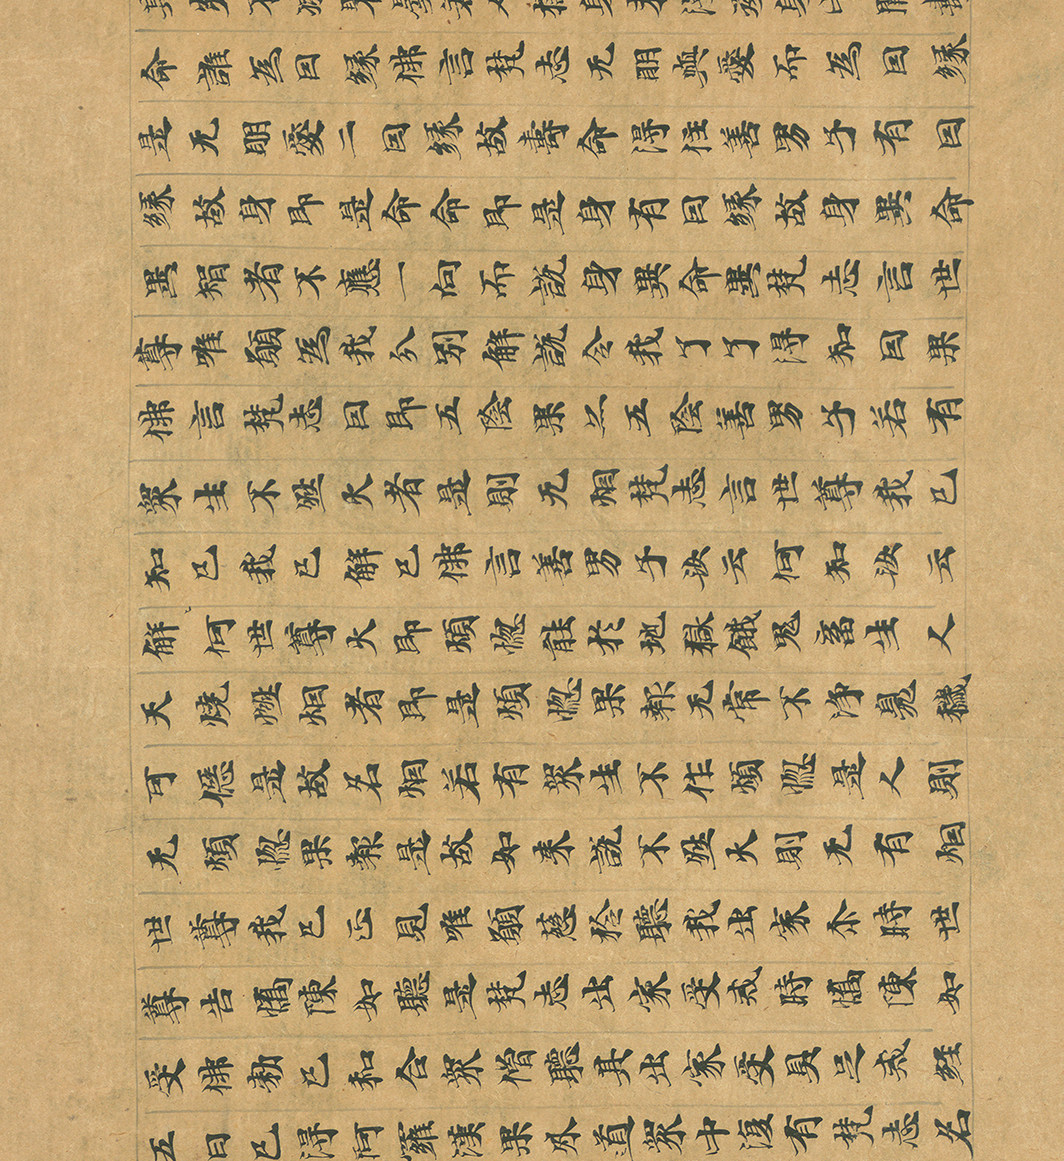 命誰為因緣佛言梵志无明與愛而為因緣
是无明愛二因緣故壽命得住善男子有因
緣故身即是命命即是身有因緣故身異命
異智者不應一向而說身異命異梵志言世
尊唯願為我分別解說令我了了得知因果
佛言梵志因即五陰果亦五陰善男子若有
眾生不然火者是則无烟梵志言世尊我已
知已我已解已佛言善男子汝云何知汝云
解何世尊火即煩惱能於地獄餓鬼畜生人
天燒燃烟者即是煩惱果報无常不淨臭穢
可惡是故名烟若有眾生不作煩惱是人則
无煩惱果報是故如來說不然火則无有烟
世尊我已正見唯願慈矜聽我出家尒時世
尊告憍陳如聽是梵志出家受戒時憍陳如
受佛勅已和合眾僧聽其出家受具足戒經
五日已得阿羅漢果外道眾中復有梵志名